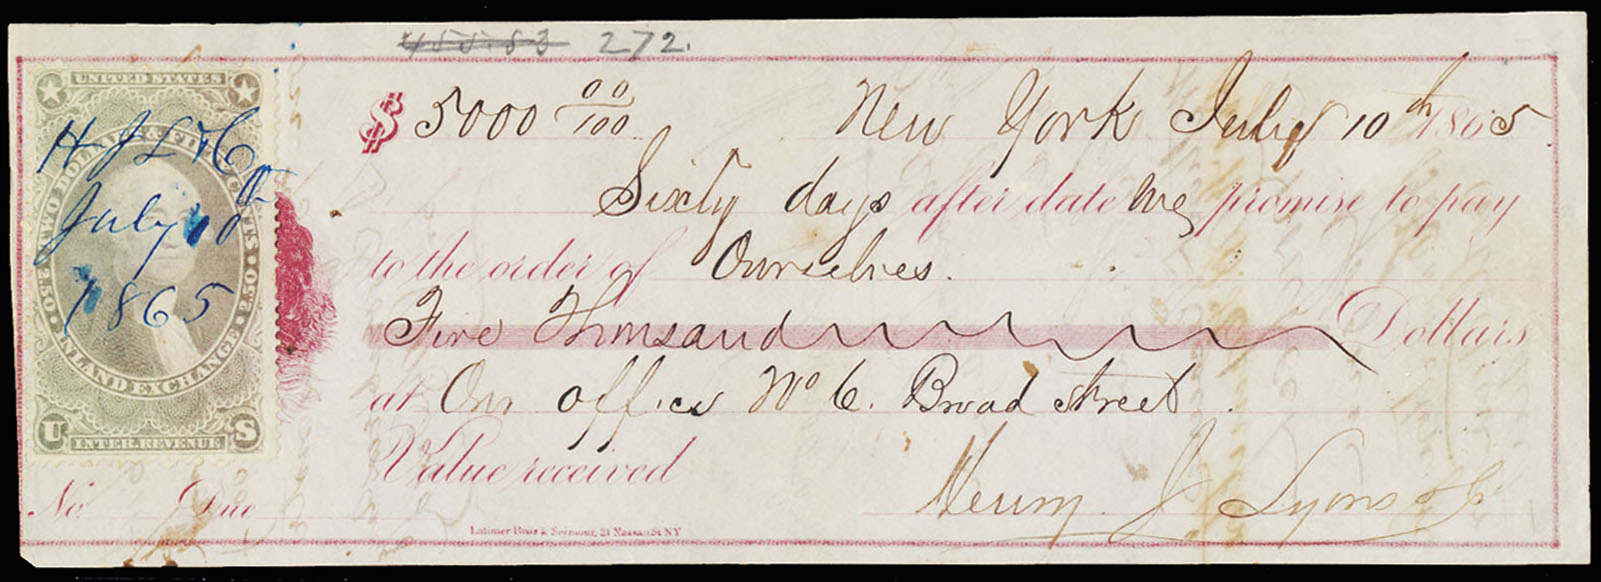 455.53 272.
UNITED STATES
TWO DOLLARS & FIFTY CENTS
2.50 INLAND EXCHANGE 2.50
U S
INTER. REVENUE
H J L & Co
July 10th
1865
$ 5000 00/100 New York July 10th 1865
Sixty days after date we promise to pay
to the order of Ourselves.
Five Thousand Dollars
at Our office No 6. Broad street
Value received
Henry J Lyons & Co
No. Due
Latimer Bros & Seymour, 21 Nassau St NY